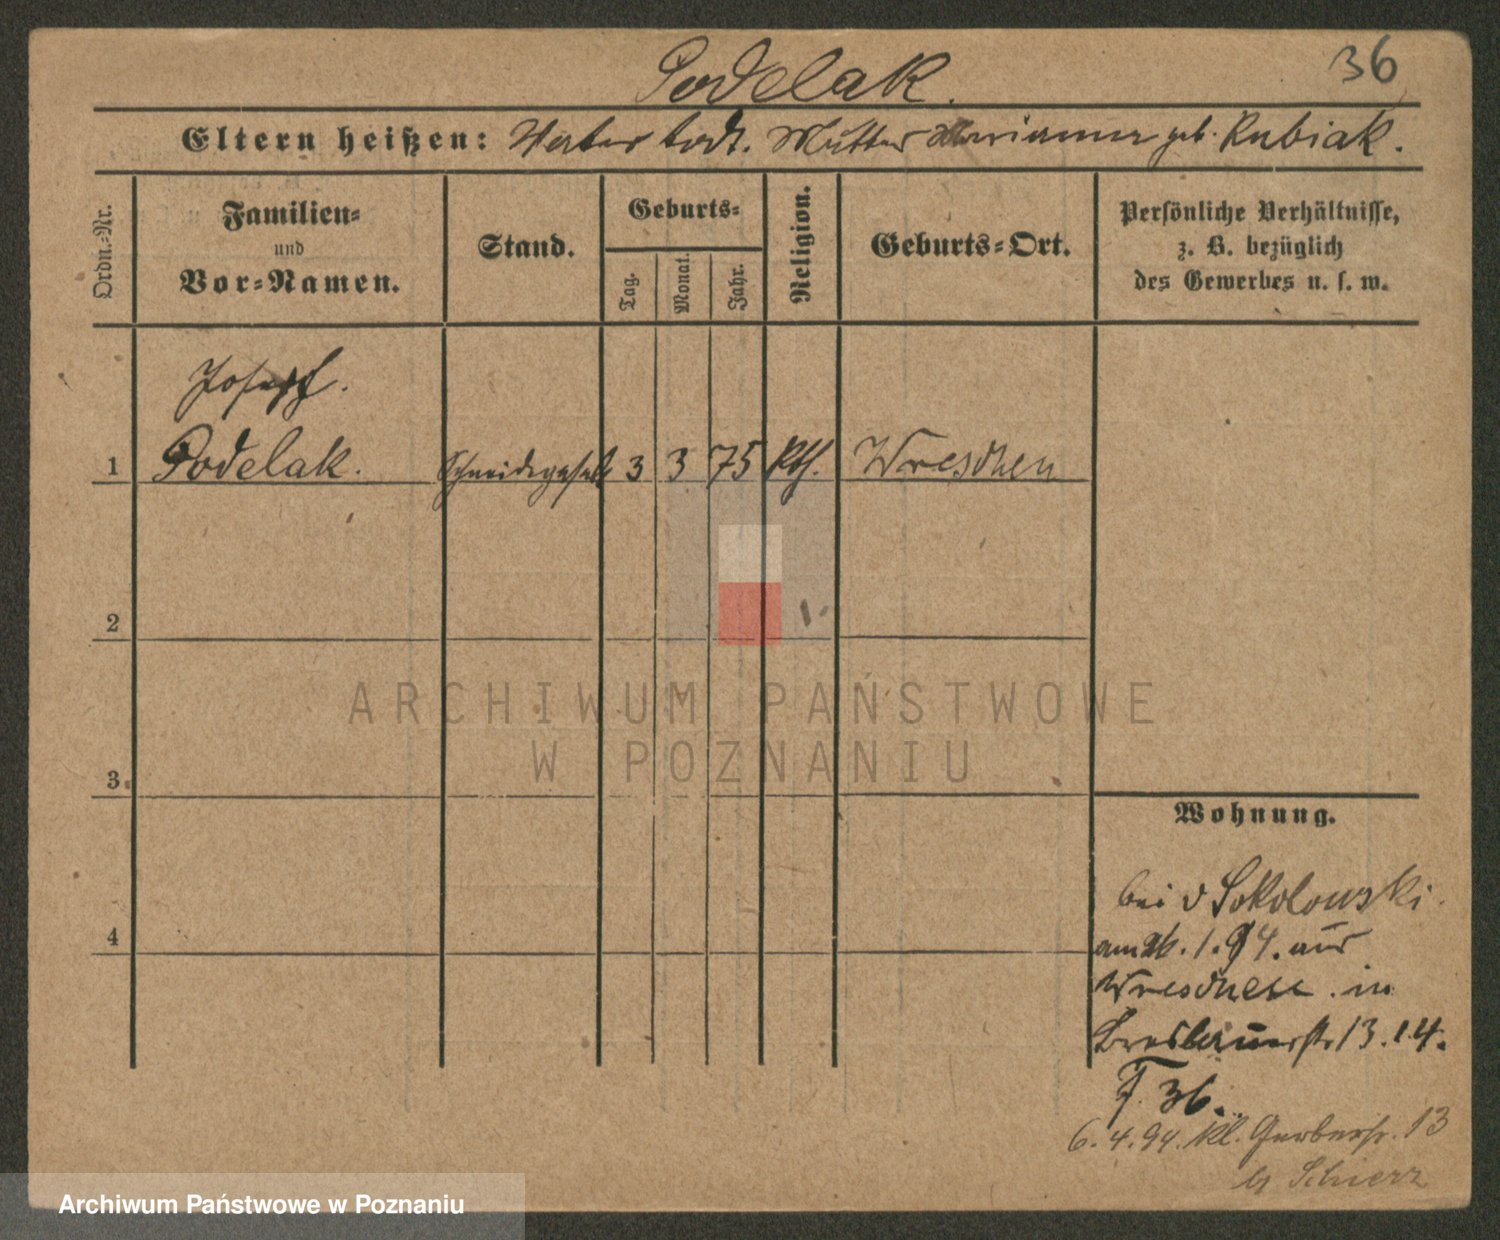 Podelak.
36
Eltern heißen: Vater todt. Mutter Marianna geb. Kubiak.
Ordn.-Nr.
Familien-
und
Vor-Namen.
Stand.
Geburts-
Tag.
Monat.
Jahr.
Religion.
Geburts-Ort.
Persönliche Verhältnisse,
z. B. bezüglich
des Gewerbes u. s. w.
Joseph.
1 Podelak. Schneidergesell 3 3 75 Kth. Wreschen
2
3.
4
ARCHIWUM PAŃSTWOWE
W POZNANIU
Wohnung.
bei v Sokolowski.
am 26. 1. 94. aus
Wreschen. in
Breslauerstr 13.14.
F. 36.
6.4.94. Kl. Gerberstr. 13
b Schierz
Archiwum Państwowe w Poznaniu